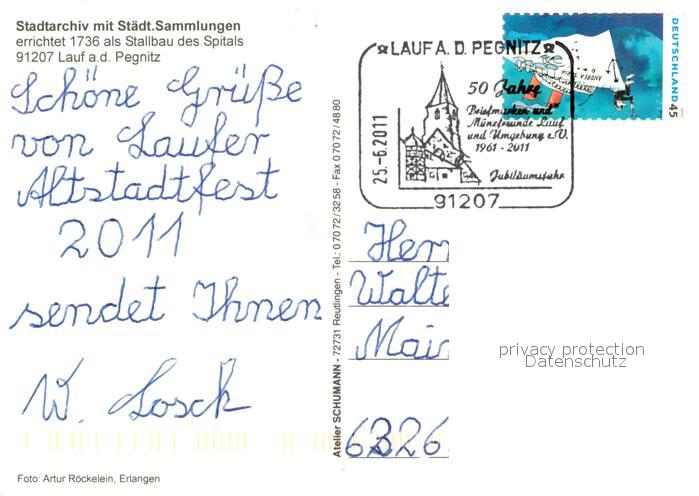 Stadtarchiv mit Städt.Sammlungen
errichtet 1736 als Stallbau des Spitals
91207 Lauf a.d. Pegnitz
Schöne Grüße
von Laufer
Altstadtfest
2011
sendet Ihnen
W. Losch
Foto: Artur Röckelein, Erlangen
Atelier SCHUMANN - 72731 Reutlingen - Tel.: 0 70 72/32 58 - Fax 0 70 72/48 80
LAUF A. D. PEGNITZ
25.-6.2011
50 Jahre
Briefmarken und
Münzfreunde Lauf
und Umgebung e.V.
1961 - 2011
Jubiläumsfahr
91207
DEUTSCHLAND 45
Herr
Walte
Main
6326
privacy protection
Datenschutz